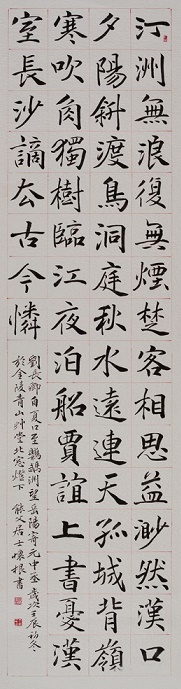 汀洲無浪復無煙楚客相思益渺然漢口
夕陽斜渡鳥洞庭秋水遠連天孤城背嶺
寒吹角獨樹臨江夜泊船賈誼上書憂漢
室長沙謫去古今憐
劉長卿自夏口至鸚鵡洲望岳陽寄元中丞 歲次壬辰初冬
於金陵青山艸堂北窓燈下 居士懷根書